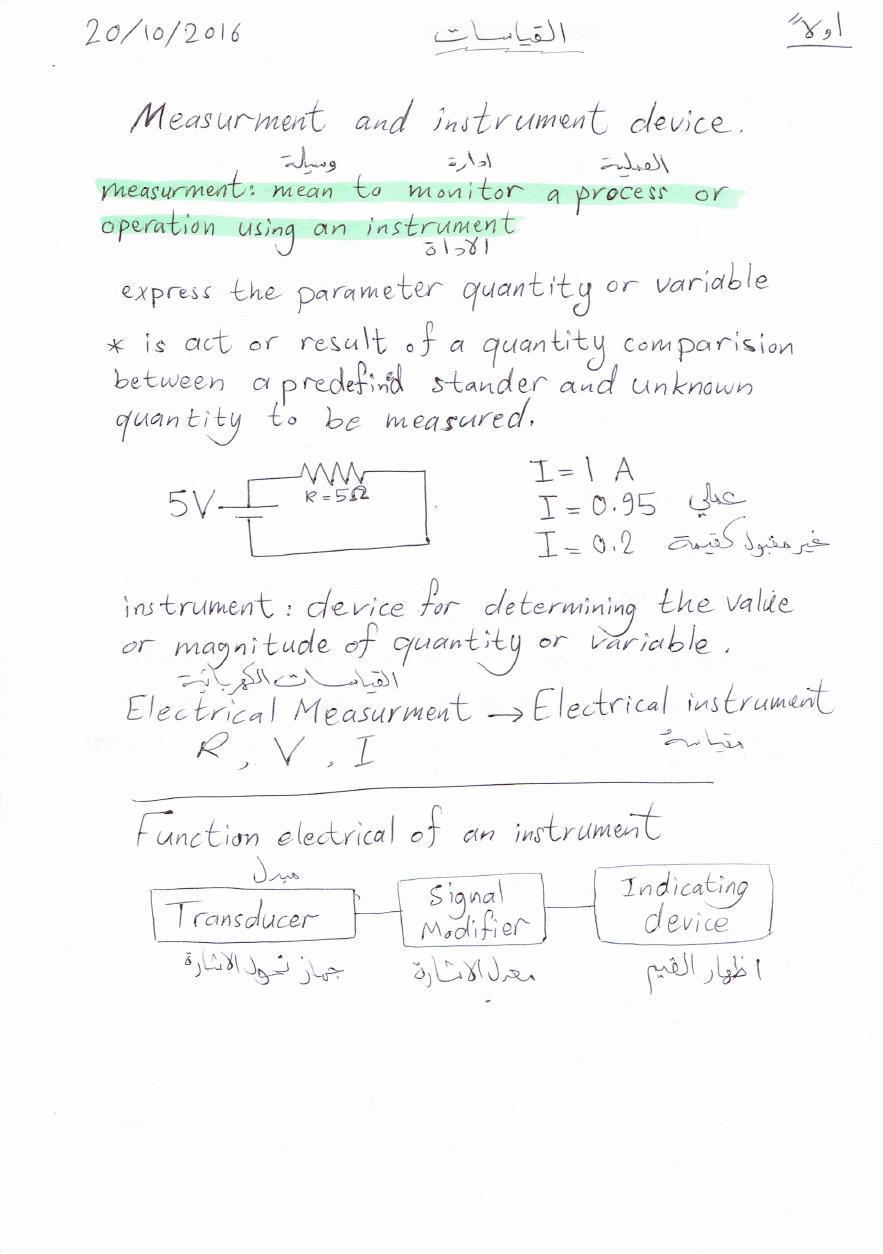 20/10/2016 القياسات اولاً
Measurment and instrument device.
وسيلة ادارة العملية
measurment: mean to monitor a process or
operation using an instrument
الاداة
express the parameter quantity or variable
* is act or result of a quantity comparision
between a predefined stander and unknown
quantity to be measured.
5V R=5Ω I=1 A
I=0.95 عملي
I=0.2 غير مقبول كقيمة
instrument: device for determining the value
or magnitude of quantity or variable.
القياسات الكهربائية
Electrical Measurment → Electrical instrument
R, V, I
Function electrical of an instrument
مبدل
Transducer Signal Modifier Indicating device
جهاز تحول الاشارة معدل الاشارة اظهار القيم